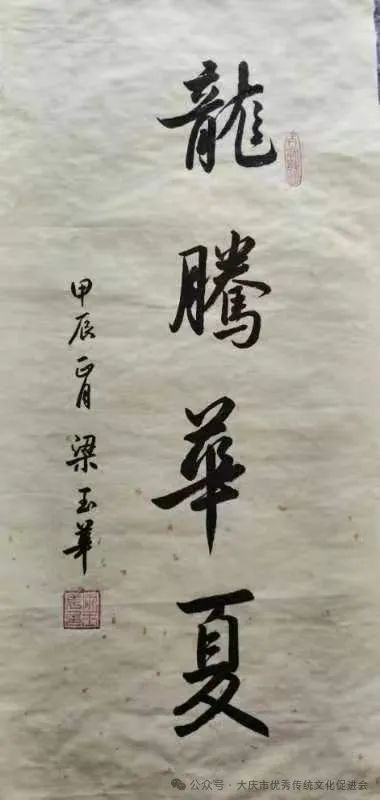 龍騰華夏
甲辰正月 梁玉華
公众号 · 大庆市优秀传统文化促进会